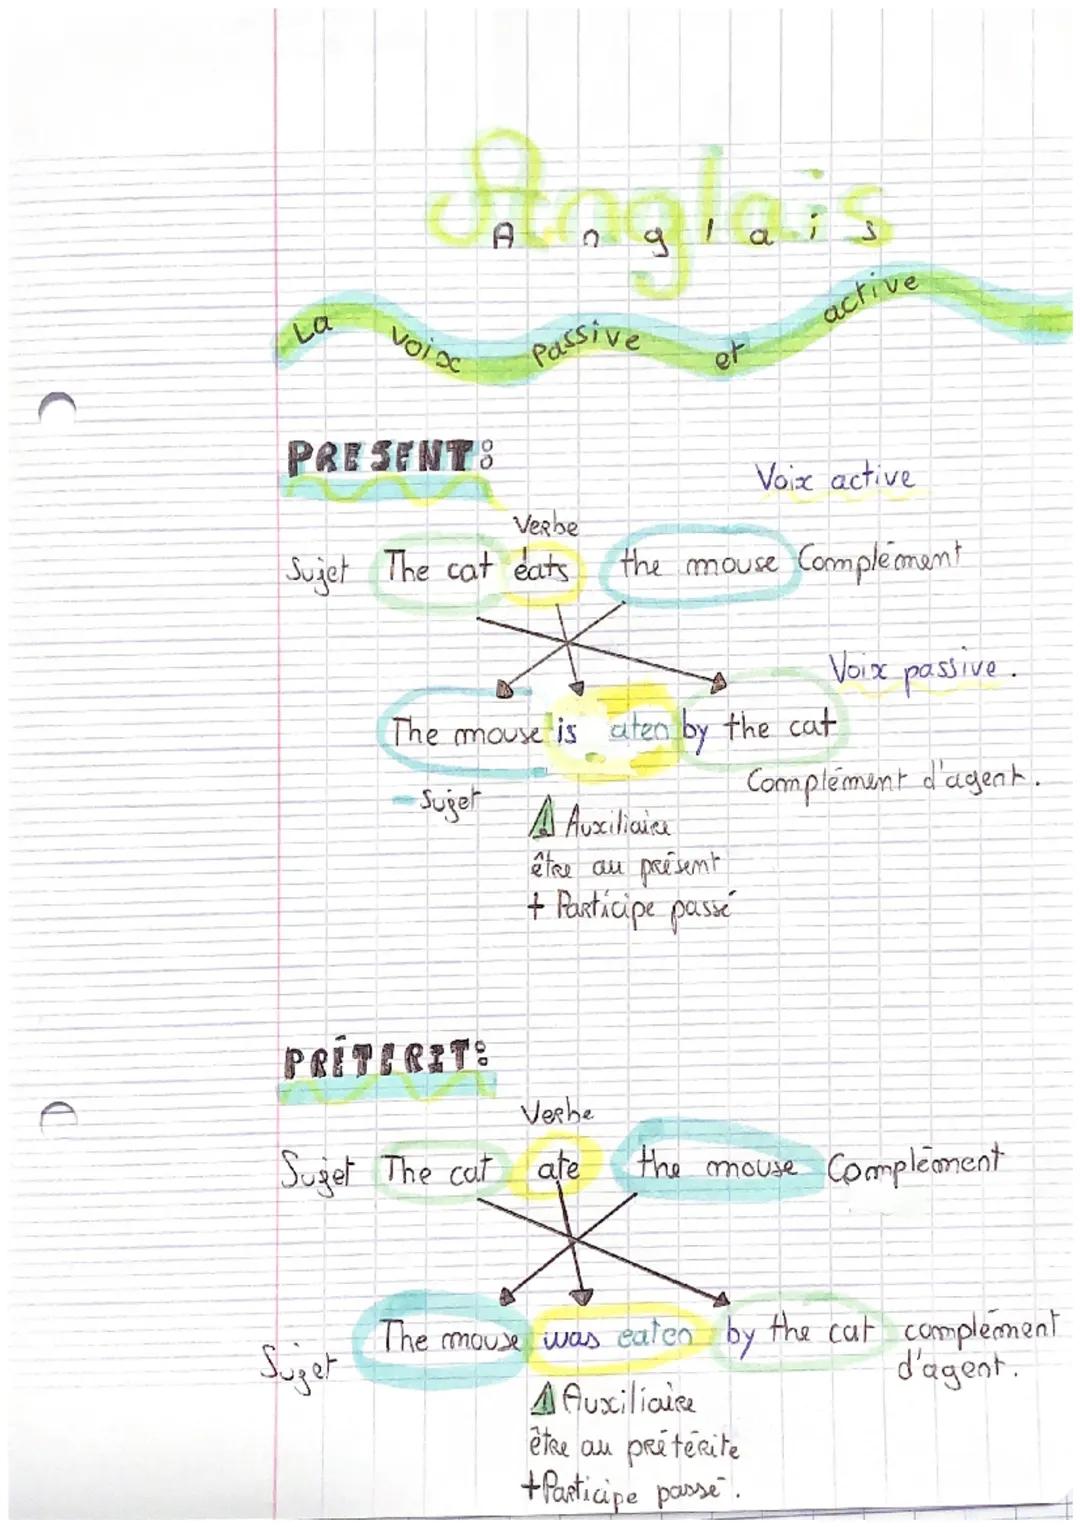 Anglais
Anglais
La voix passive et active
PRESENT:
Voix active
Verbe
Sujet The cat eats the mouse Complément
Voix passive.
The mouse is aten by the cat
Sujet
Complément d'agent.
⚠ Auxiliaire
être au présent
+ Participe passé
PRÉTERIT:
Verbe
Sujet The cat ate the mouse Complément
The mouse was eaten by the cat complément
Sujet
d'agent.
⚠ Auxiliaire
être au prétérite
+Participe passé.